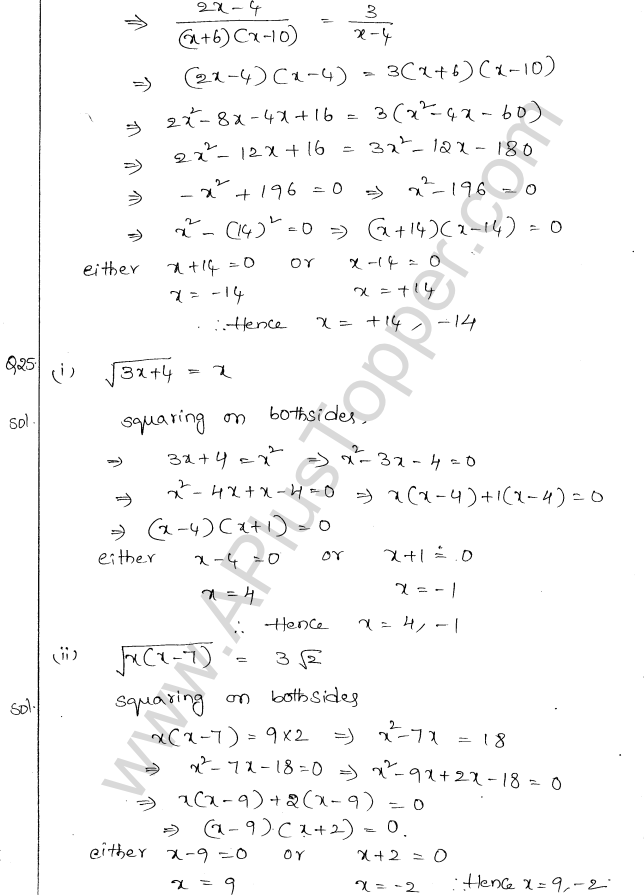 ⇒ (2x-4)/((x+6)(x-10)) = 3/(x-4)
⇒ (2x-4)(x-4) = 3(x+6)(x-10)
⇒ 2x²-8x-4x+16 = 3(x²-4x-60)
⇒ 2x²-12x+16 = 3x²-12x-180
⇒ -x²+196=0 ⇒ x²-196=0
⇒ x²-(14)²=0 ⇒ (x+14)(x-14) = 0
either x+14=0 or x-14=0
x=-14 x=+14
∴ Hence x = +14, -14
Q25. (i) √(3x+4) = x
sol. squaring on bothsides,
⇒ 3x+4=x² ⇒ x²-3x-4=0
⇒ x²-4x+x-4=0 ⇒ x(x-4)+1(x-4)=0
⇒ (x-4)(x+1)=0
either x-4=0 or x+1=0
x=4 x=-1
∴ Hence x=4,-1
(ii) √(x(x-7)) = 3√2
sol. squaring on bothsides
x(x-7)=9×2 ⇒ x²-7x=18
⇒ x²-7x-18=0 ⇒ x²-9x+2x-18=0
⇒ x(x-9)+2(x-9)=0
⇒ (x-9)(x+2)=0.
either x-9=0 or x+2=0
x=9 x=-2 ∴ Hence x=9,-2.
www.APlusTopper.com